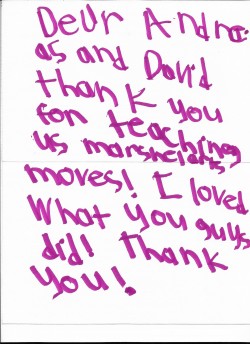 Deur Andrae
as and David
thank you
for teaching
us marshelarts
moves! I loved
What you guys
did! Thank
You!